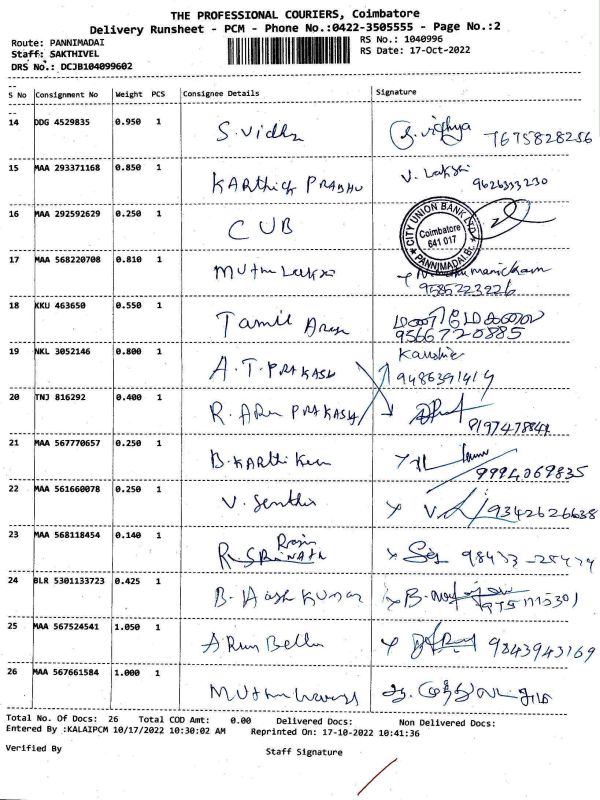 THE PROFESSIONAL COURIERS, Coimbatore
Delivery Runsheet - PCM - Phone No.:0422-3505555 - Page No.:2
Route: PANNIMADAI RS No.: 1040996
Staff: SAKTHIVEL RS Date: 17-Oct-2022
DRS No.: DCJB104099602
S No Consignment No Weight PCS Consignee Details Signature
14 DDG 4529835 0.950 1 S.Vidhya S.Vidhya 7675828256
15 MAA 293371168 0.850 1 KARThick PRABHU V. Lakshi 9626333230
16 MAA 292592629 0.250 1 CUB CITY UNION BANK LTD. Coimbatore 641 017 PANNIMADAI Br.
17 MAA 568220708 0.810 1 Muthu 9585223226
18 KKU 463650 0.550 1 Tamil 9566720885
19 NKL 3052146 0.800 1 A.T.PRAKASH 9486391419
20 TNJ 816292 0.400 1 R. ARUN PRAKASH
21 MAA 567770657 0.250 1 B.KARThikeun 9994069835
22 MAA 561660078 0.250 1 V. Senthil 9342626638
23 MAA 568118454 0.140 1 R. SRINATH
24 BLR 5301133723 0.425 1 B. KUMAR
25 MAA 567524541 1.050 1 ARUN 9843943169
26 MAA 567661584 1.000 1 Muthu
Total No. Of Docs: 26 Total COD Amt: 0.00 Delivered Docs: Non Delivered Docs:
Entered By :KALAIPCM 10/17/2022 10:30:02 AM Reprinted On: 17-10-2022 10:41:36
Verified By Staff Signature